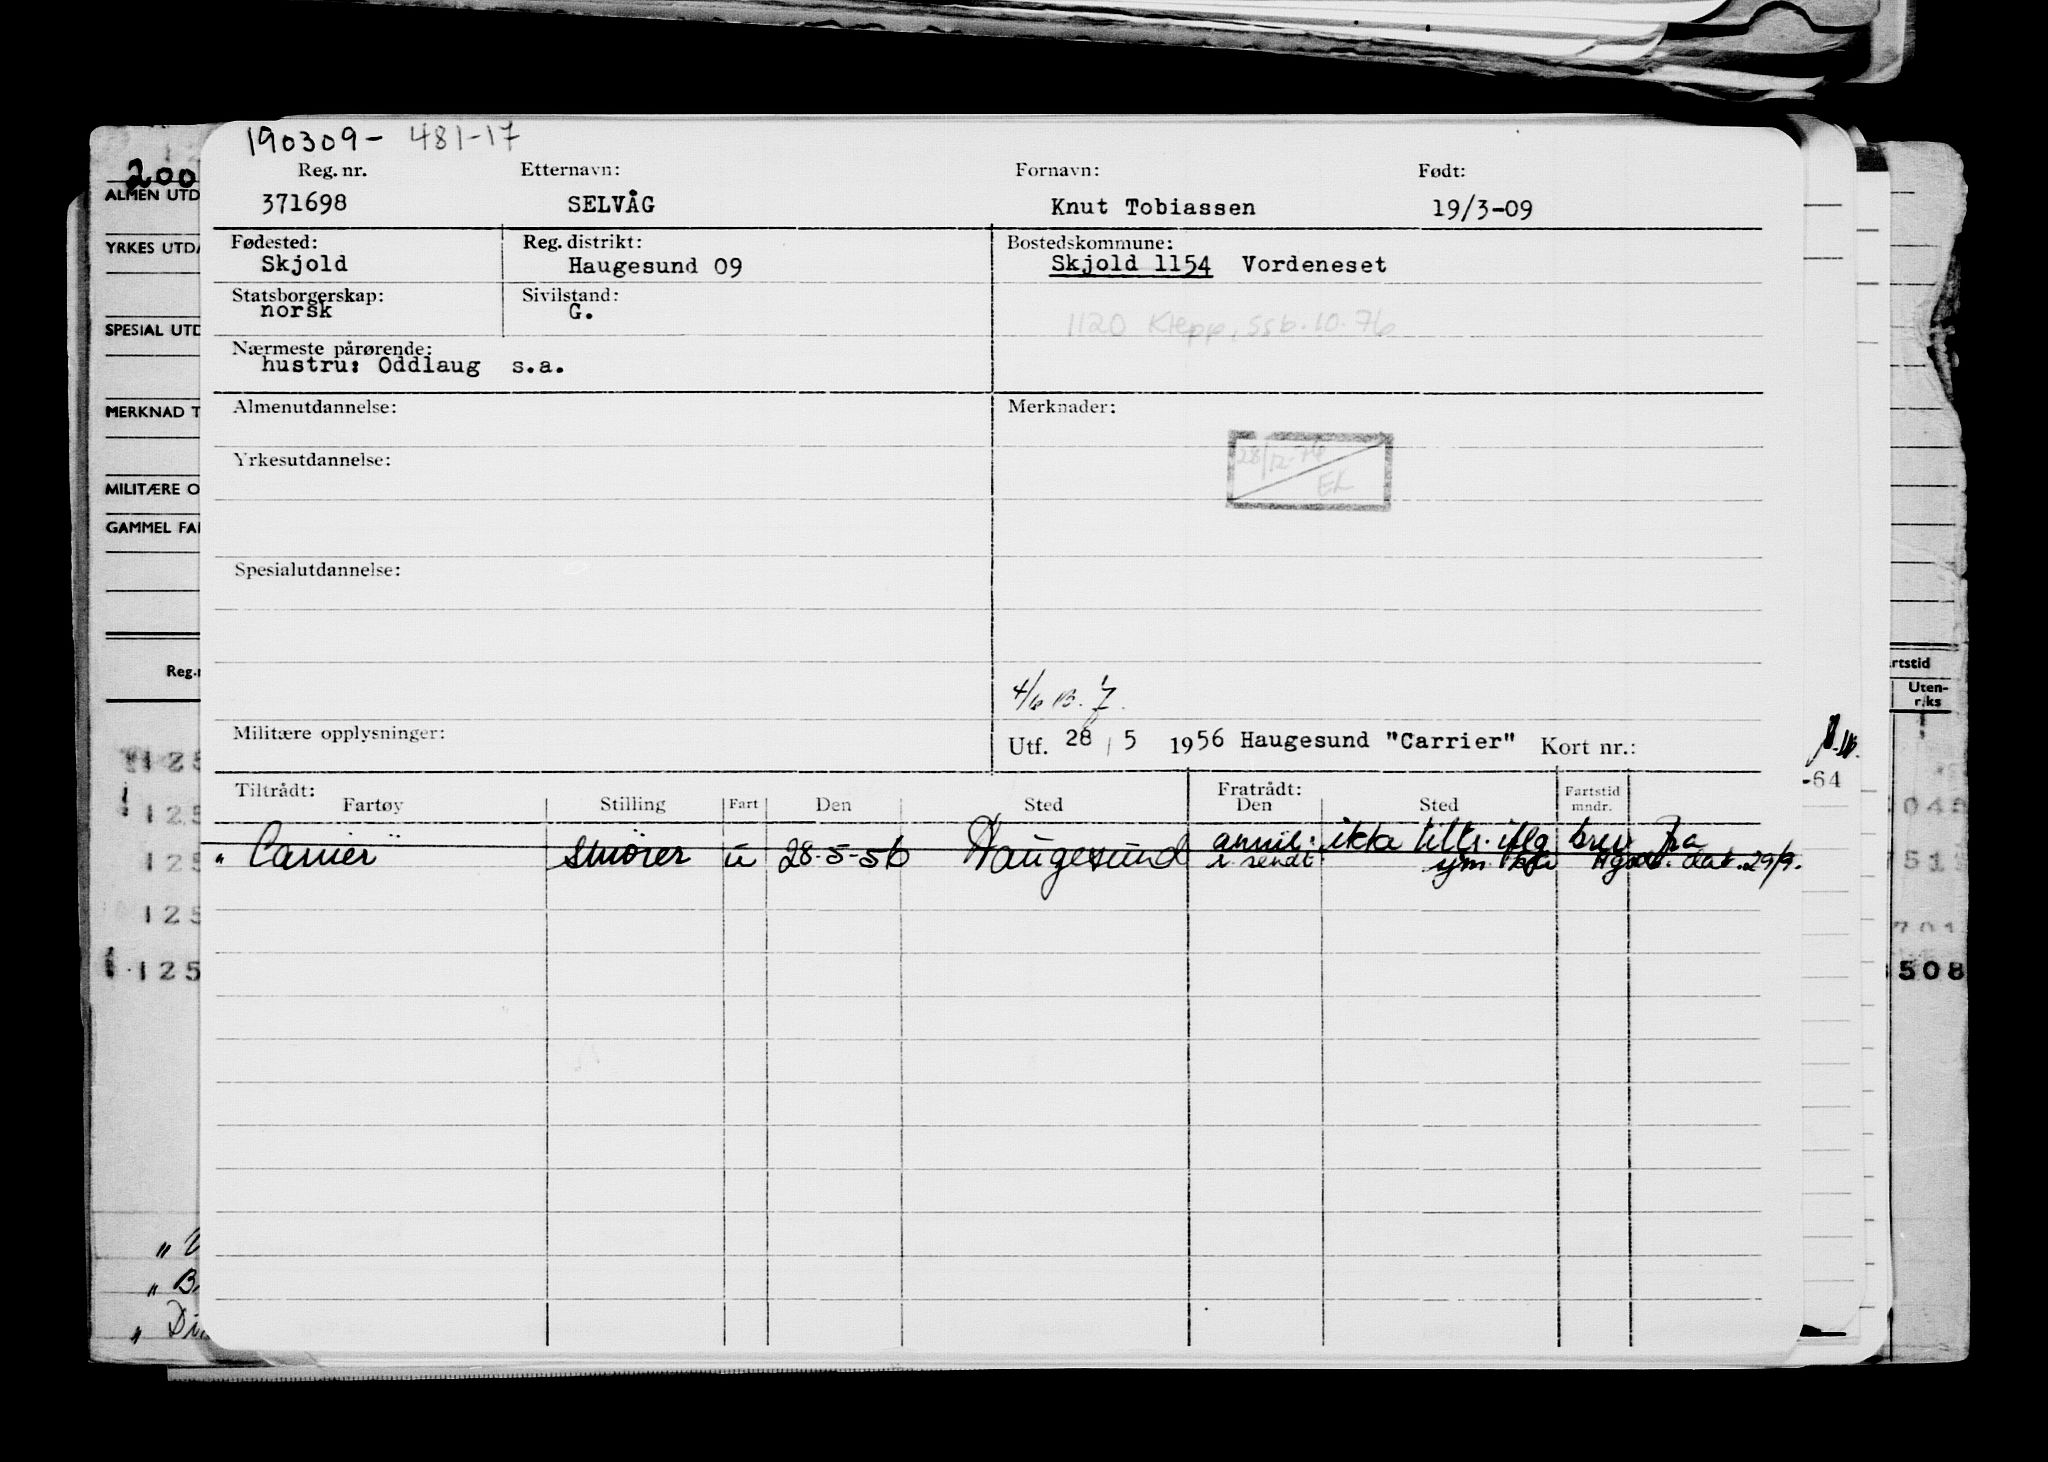 190309- 481-17
200
Reg. nr. Etternavn: Fornavn: Født:
371698 SELVÅG Knut Tobiassen 19/3-09
Fødested: Reg. distrikt: Bostedskommune:
Skjold Haugesund 09 Skjold 1154 Vordeneset
Statsborgerskap: Sivilstand:
norsk G.
1120 Klepp, ssb. 10. 76
Nærmeste pårørende:
hustru: Oddlaug s.a.
Almenutdannelse: Merknader:
28/12-76
EL
Yrkesutdannelse:
Spesialutdannelse:
4/6
Militære opplysninger: Utf. 28 / 5 1956 Haugesund "Carrier" Kort nr.:
Tiltrådt: Fratrådt:
Fartøy Stilling Fart Den Sted Den Sted Fartstid mndr.
" Carrier" smører u 28-5-56 Haugesund annul. ikke tiltr. iflg brev fra
dat. 29/9.
ALMEN UTD
YRKES UTDA
SPESIAL UTD
MERKNAD T
MILITÆRE O
GAMMEL FAR
Reg.n
125
125
125
125
125
" B
" Di
rtstid
Uten-
riks
-64
508